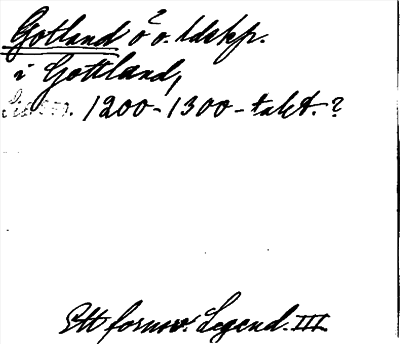 Gotland ö o. ldskp.
i Gottland,
1200-1300-talet.?
Ett fornsv. Legend. III